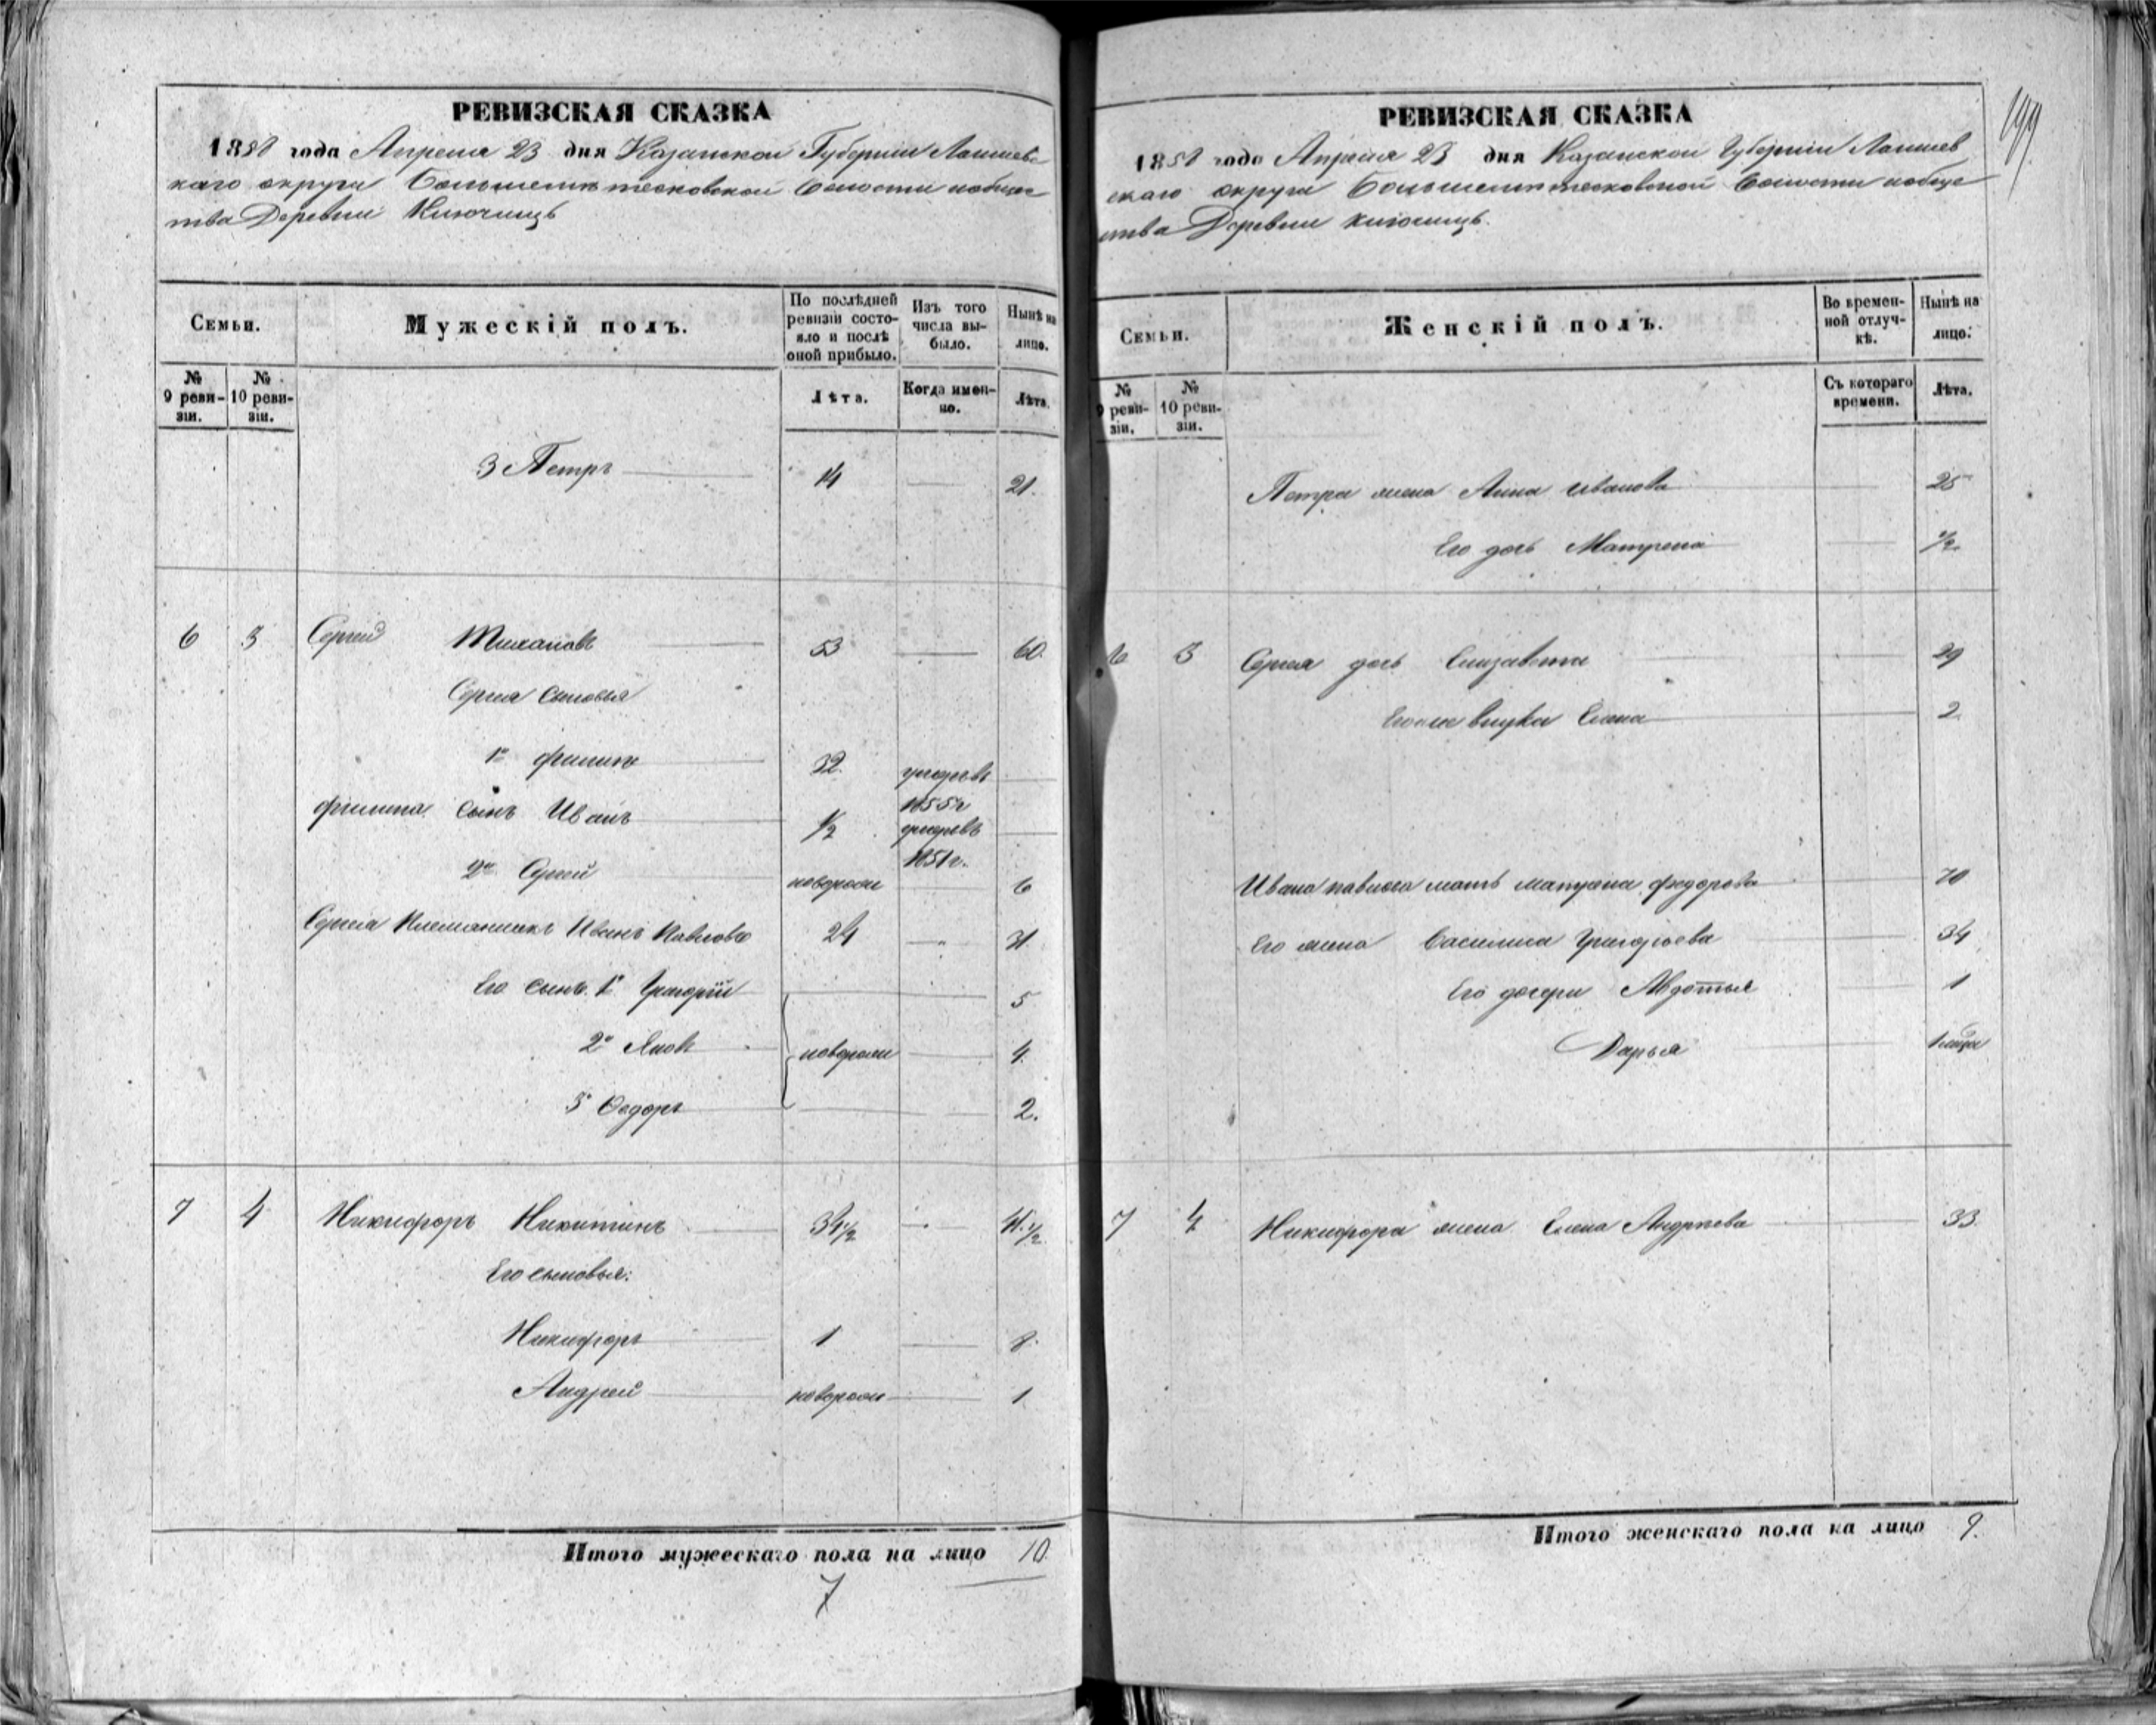 РЕВИЗСКАЯ СКАЗКА
1858 года Апреля 23 дня Казанской Губернии Лаишевс
каго округа волости
Деревни Ключищь
Семьи.
Мужескій полъ.
По послѣдней ревизіи состояло и послѣ оной прибыло.
Изъ того числа выбыло.
Нынѣ на лицо.
№ 9 ревизіи.
№ 10 ревизіи.
Лѣта.
Когда именно.
Лѣта.
3 Петръ 14 21.
6 3 Сергей 53 60.
Сергея сыновья
1й Филипъ 32
1855г
Филиппа сынъ Иванъ 1/2
1851г.
2й Сергей новорожд 6
Сергея племянникъ Иванъ Павловъ 24 31
Его сынъ 1й Григорій 5
2й новорожд 4.
3й Ѳедоръ 2.
7 4 Никифоръ Никитинъ 34 1/2 41 1/2
Его сыновья:
Никифоръ 1 8.
Андрей новорожд 1
Итого мужескаго пола на лицо 10.
7
199
РЕВИЗСКАЯ СКАЗКА
1858 года Апреля 23 дня Казанской Губернии Лаишев
скаго округа волости
Деревни Ключищь.
Семьи.
Женскій полъ.
Во временной отлучкѣ.
Нынѣ на лицо.
№ 9 ревизіи.
№ 10 ревизіи.
Съ котораго времени.
Лѣта.
Петра жена Анна Иванова 25
Его дочь Матрена 1/2
6 3 Сергея дочь Елизавета 29
внука Елена 2.
Ивана Павлова мать Федорова 70
Его жена Василиса Григорьева 34
Его дочери Авдотья 1
Дарья
7 4 Никифора жена Елена Андреева 33
Итого женскаго пола на лицо 9.